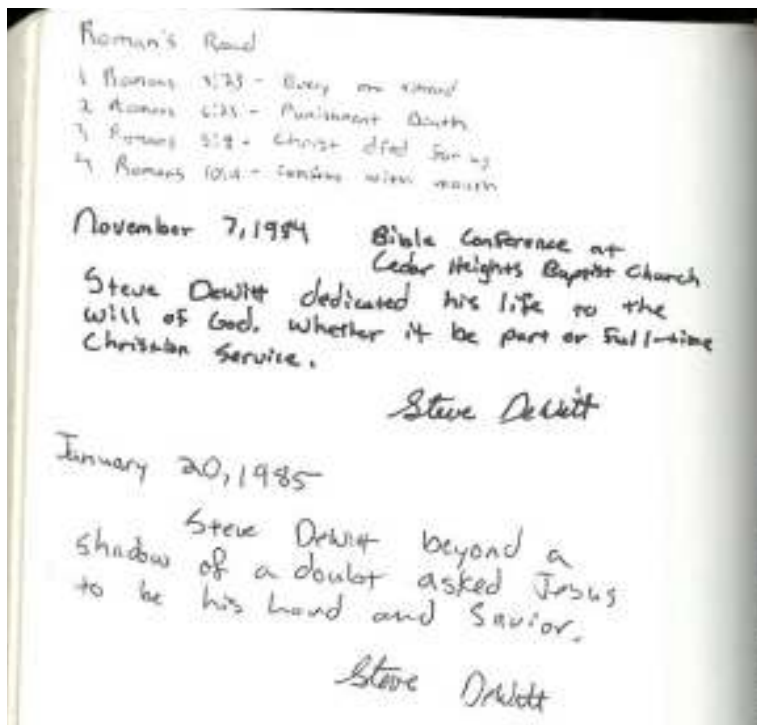 Roman's Road
1 Romans 3:23 - Every one sinned
2 Romans 6:23 - Punishment Death
3 Romans 5:8 - Christ died for us
4 Romans - confess with mouth
November 7, 1984 Bible Conference at
Cedar Heights Baptist Church
Steve DeWitt dedicated his life to the
will of God. Whether it be part or full-time
Christian Service.
Steve DeWitt
January 20, 1985
Steve DeWitt beyond a
shadow of a doubt asked Jesus
to be his and Savior.
Steve DeWitt